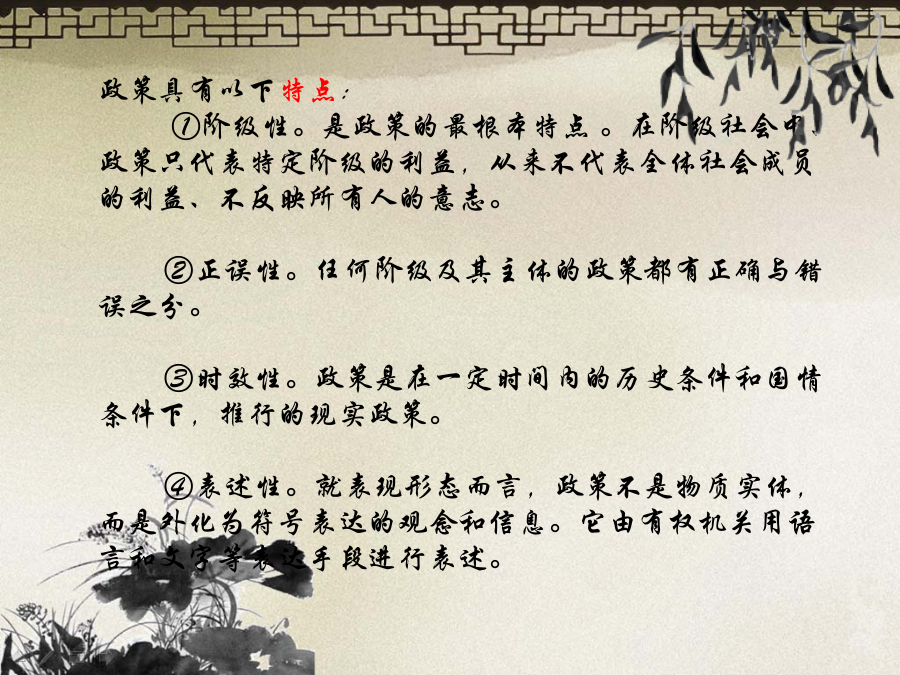 政策具有以下特点：
①阶级性。是政策的最根本特点 。在阶级社会中，
政策只代表特定阶级的利益，从来不代表全体社会成员
的利益、不反映所有人的意志。
②正误性。任何阶级及其主体的政策都有正确与错
误之分。
③时效性。政策是在一定时间内的历史条件和国情
条件下，推行的现实政策。
④表述性。就表现形态而言，政策不是物质实体，
而是外化为符号表达的观念和信息。它由有权机关用语
言和文字等表达手段进行表述。